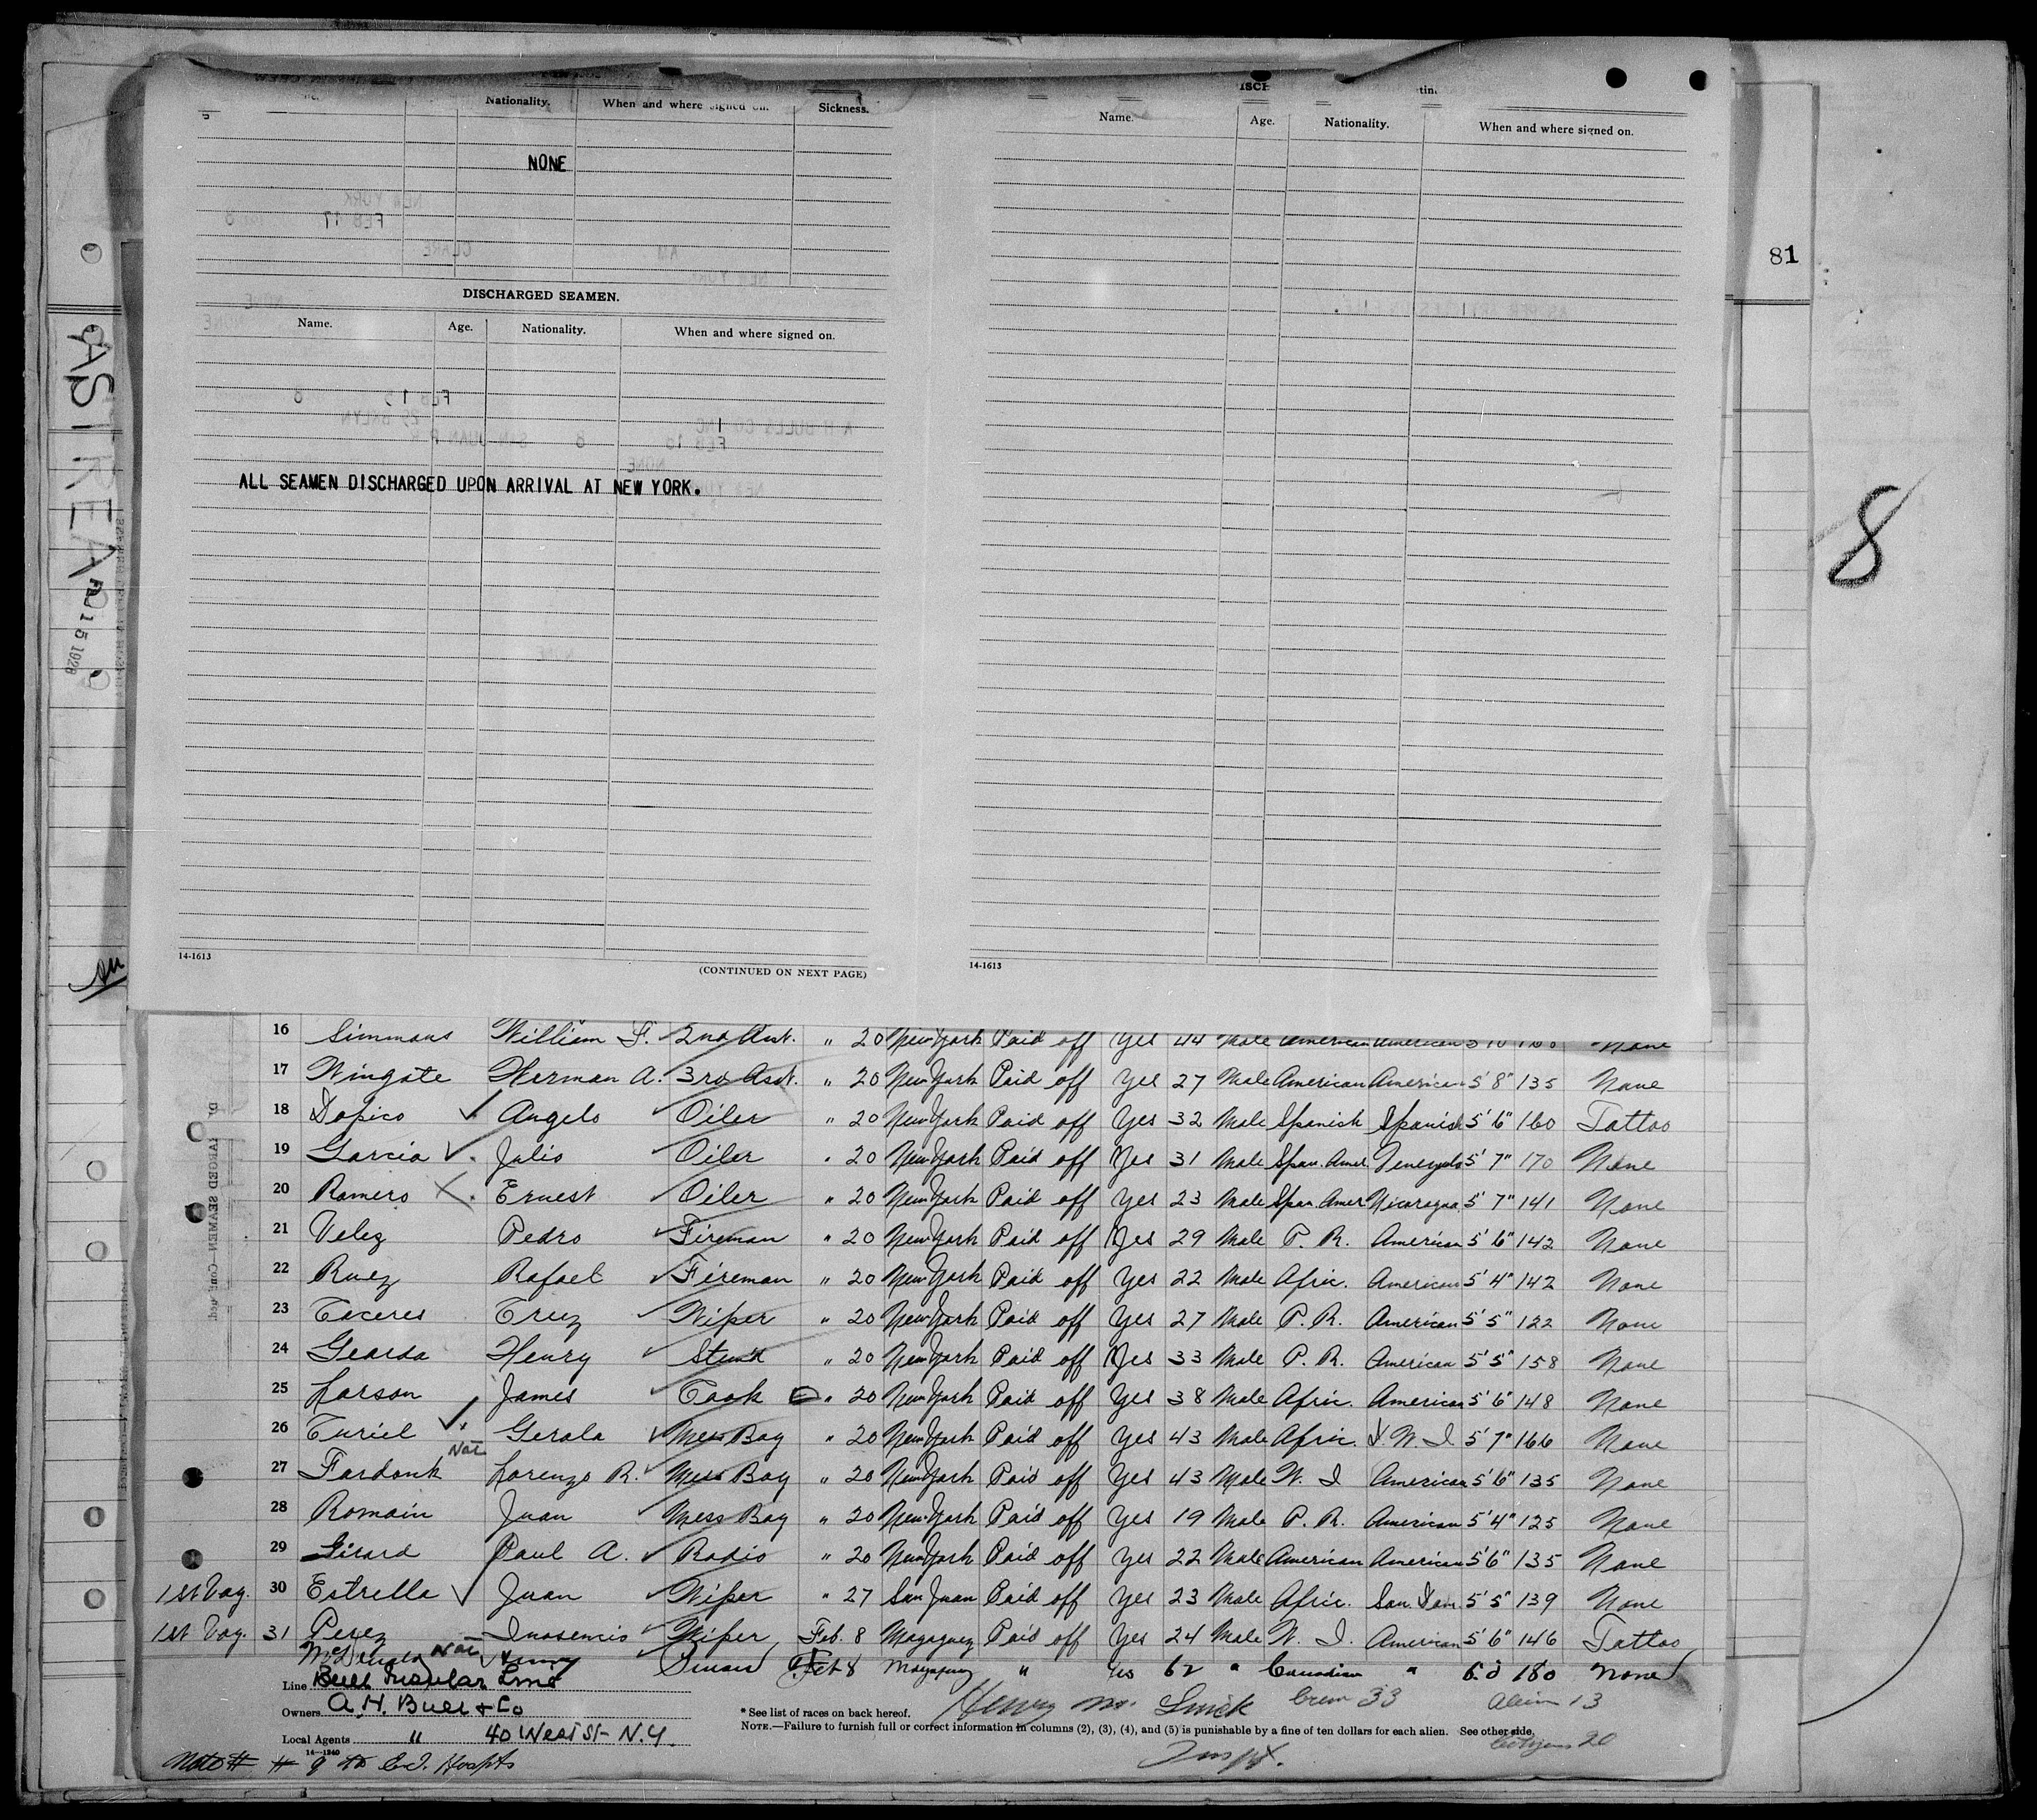 Nationality. When and where signed on. Sickness.
NONE
DISCHARGED SEAMEN.
Name. Age. Nationality. When and where signed on.
ALL SEAMEN DISCHARGED UPON ARRIVAL AT NEW YORK.
14-1613
(CONTINUED ON NEXT PAGE)
Name. Age. Nationality. When and where signed on.
14-1613
81
8
15 1928
16 Simmons William F. 2nd Asst. " 20 New York Paid off Yes 44 Male American American None
17 Wingate Herman A. 3rd Asst. " 20 New York Paid off Yes 27 Male American American 5' 8" 135 None
18 Dopico Angelo Oiler " 20 New York Paid off Yes 32 Male Spanish Spanish 5' 6" 160 Tattoo
19 Garcia Julio Oiler " 20 New York Paid off Yes 31 Male Span. Amer. 5' 7" 170 None
20 Romero Ernest Oiler " 20 New York Paid off Yes 23 Male Span. Amer Nicaragua 5' 7" 141 None
21 Velez Pedro Fireman " 20 New York Paid off Yes 29 Male P. R. American 5' 6" 142 None
22 Ruez Rafael Fireman " 20 New York Paid off Yes 22 Male Afric. American 5' 4" 142 None
23 Caceres Cruz Wiper " 20 New York Paid off Yes 27 Male P. R. American 5' 5" 122 None
24 Gearda Henry " 20 New York Paid off Yes 33 Male P. R. American 5' 5" 158 None
25 Larson James Cook " 20 New York Paid off Yes 38 Male Afric. American 5' 6" 148 None
26 Curiel Gerald Mess Boy " 20 New York Paid off Yes 43 Male Afric. D. W. I 5' 7" 166 None
Nat
27 Fardonk Lorenzo R. Mess Boy " 20 New York Paid off Yes 43 Male W. I American 5' 6" 135 None
28 Romain Juan Mess Boy " 20 New York Paid off Yes 19 Male P. R. American 5' 4" 125 None
29 Girard Paul A. Radio " 20 New York Paid off Yes 22 Male American American 5' 6" 135 None
1st Voy. 30 Estrella Juan Wiper " 27 San Juan Paid off Yes 23 Male Afric. San. Dom. 5' 5" 139 None
1st Voy. 31 Perez Inosencio Wiper Feb. 8 Mayaguez Paid off Yes 24 Male W. I. American 5' 6" 146 Tattoo
Nat Feb 8 Mayaguez " Yes 62 " Canadian " 6.0 180 None
Line Bull Insular Line
Owners A. H. Bull & Co
Local Agents " 40 West St- N.Y.
14-1240
* See list of races on back hereof.
Crew 33 Alien 13
NOTE.—Failure to furnish full or correct information in columns (2), (3), (4), and (5) is punishable by a fine of ten dollars for each alien. See other side.
Citizens 20
Inspt.
Note # # 9 to E.I. Hospts